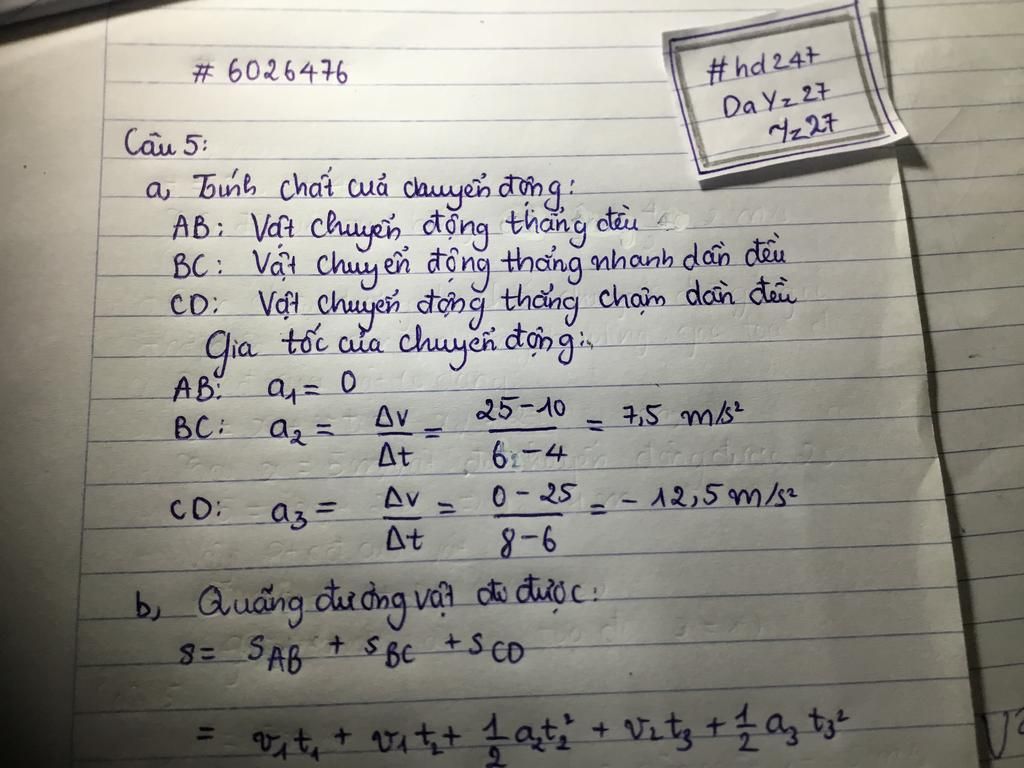 # 6026476
#hd247
DaYz27
Yz27
Câu 5:
a, Tính chất của chuyển động:
AB: Vật chuyển động thẳng đều
BC: Vật chuyển động thẳng nhanh dần đều
CD: Vật chuyển động thẳng chậm dần đều
Gia tốc của chuyển động:
AB: a₁ = 0
BC: a₂ = Δv/Δt = (25-10)/(6-4) = 7,5 m/s²
CD: a₃ = Δv/Δt = (0-25)/(8-6) = -12,5 m/s²
b, Quãng đường vật đi được:
s = s_AB + s_BC + s_CD
= v₁t₁ + v₁t₂ + 1/2 a₂t₂² + v₂t₃ + 1/2 a₃t₃²